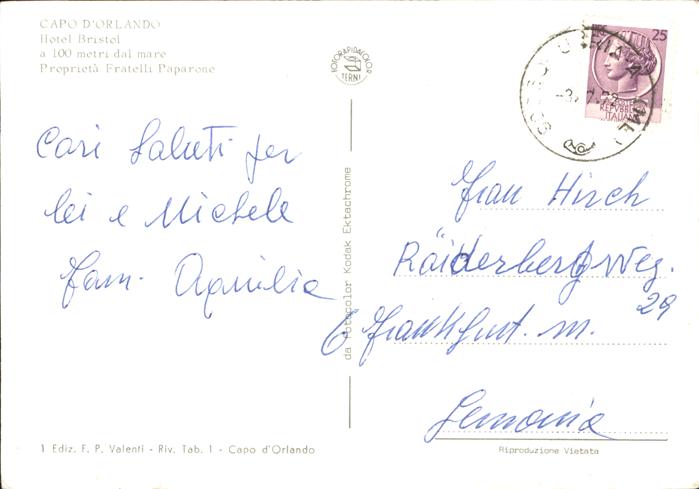 CAPO D'ORLANDO
Hotel Bristol
a 100 metri dal mare
Proprietà Fratelli Paparone
FOTORAPIDACOLOR
TERNI
LIRE 25
REPUBBLICA
ITALIANA
Cari Saluti per
lei e Michele
fam. Aquilia
da Fotocolor Kodak Ektachrome
Frau Hirch
Räiderbergweg.
29
6 Frankfurt. m.
Jemonia
1 Ediz. F. P. Valenti - Riv. Tab. 1 - Capo d'Orlando
Riproduzione Vietata